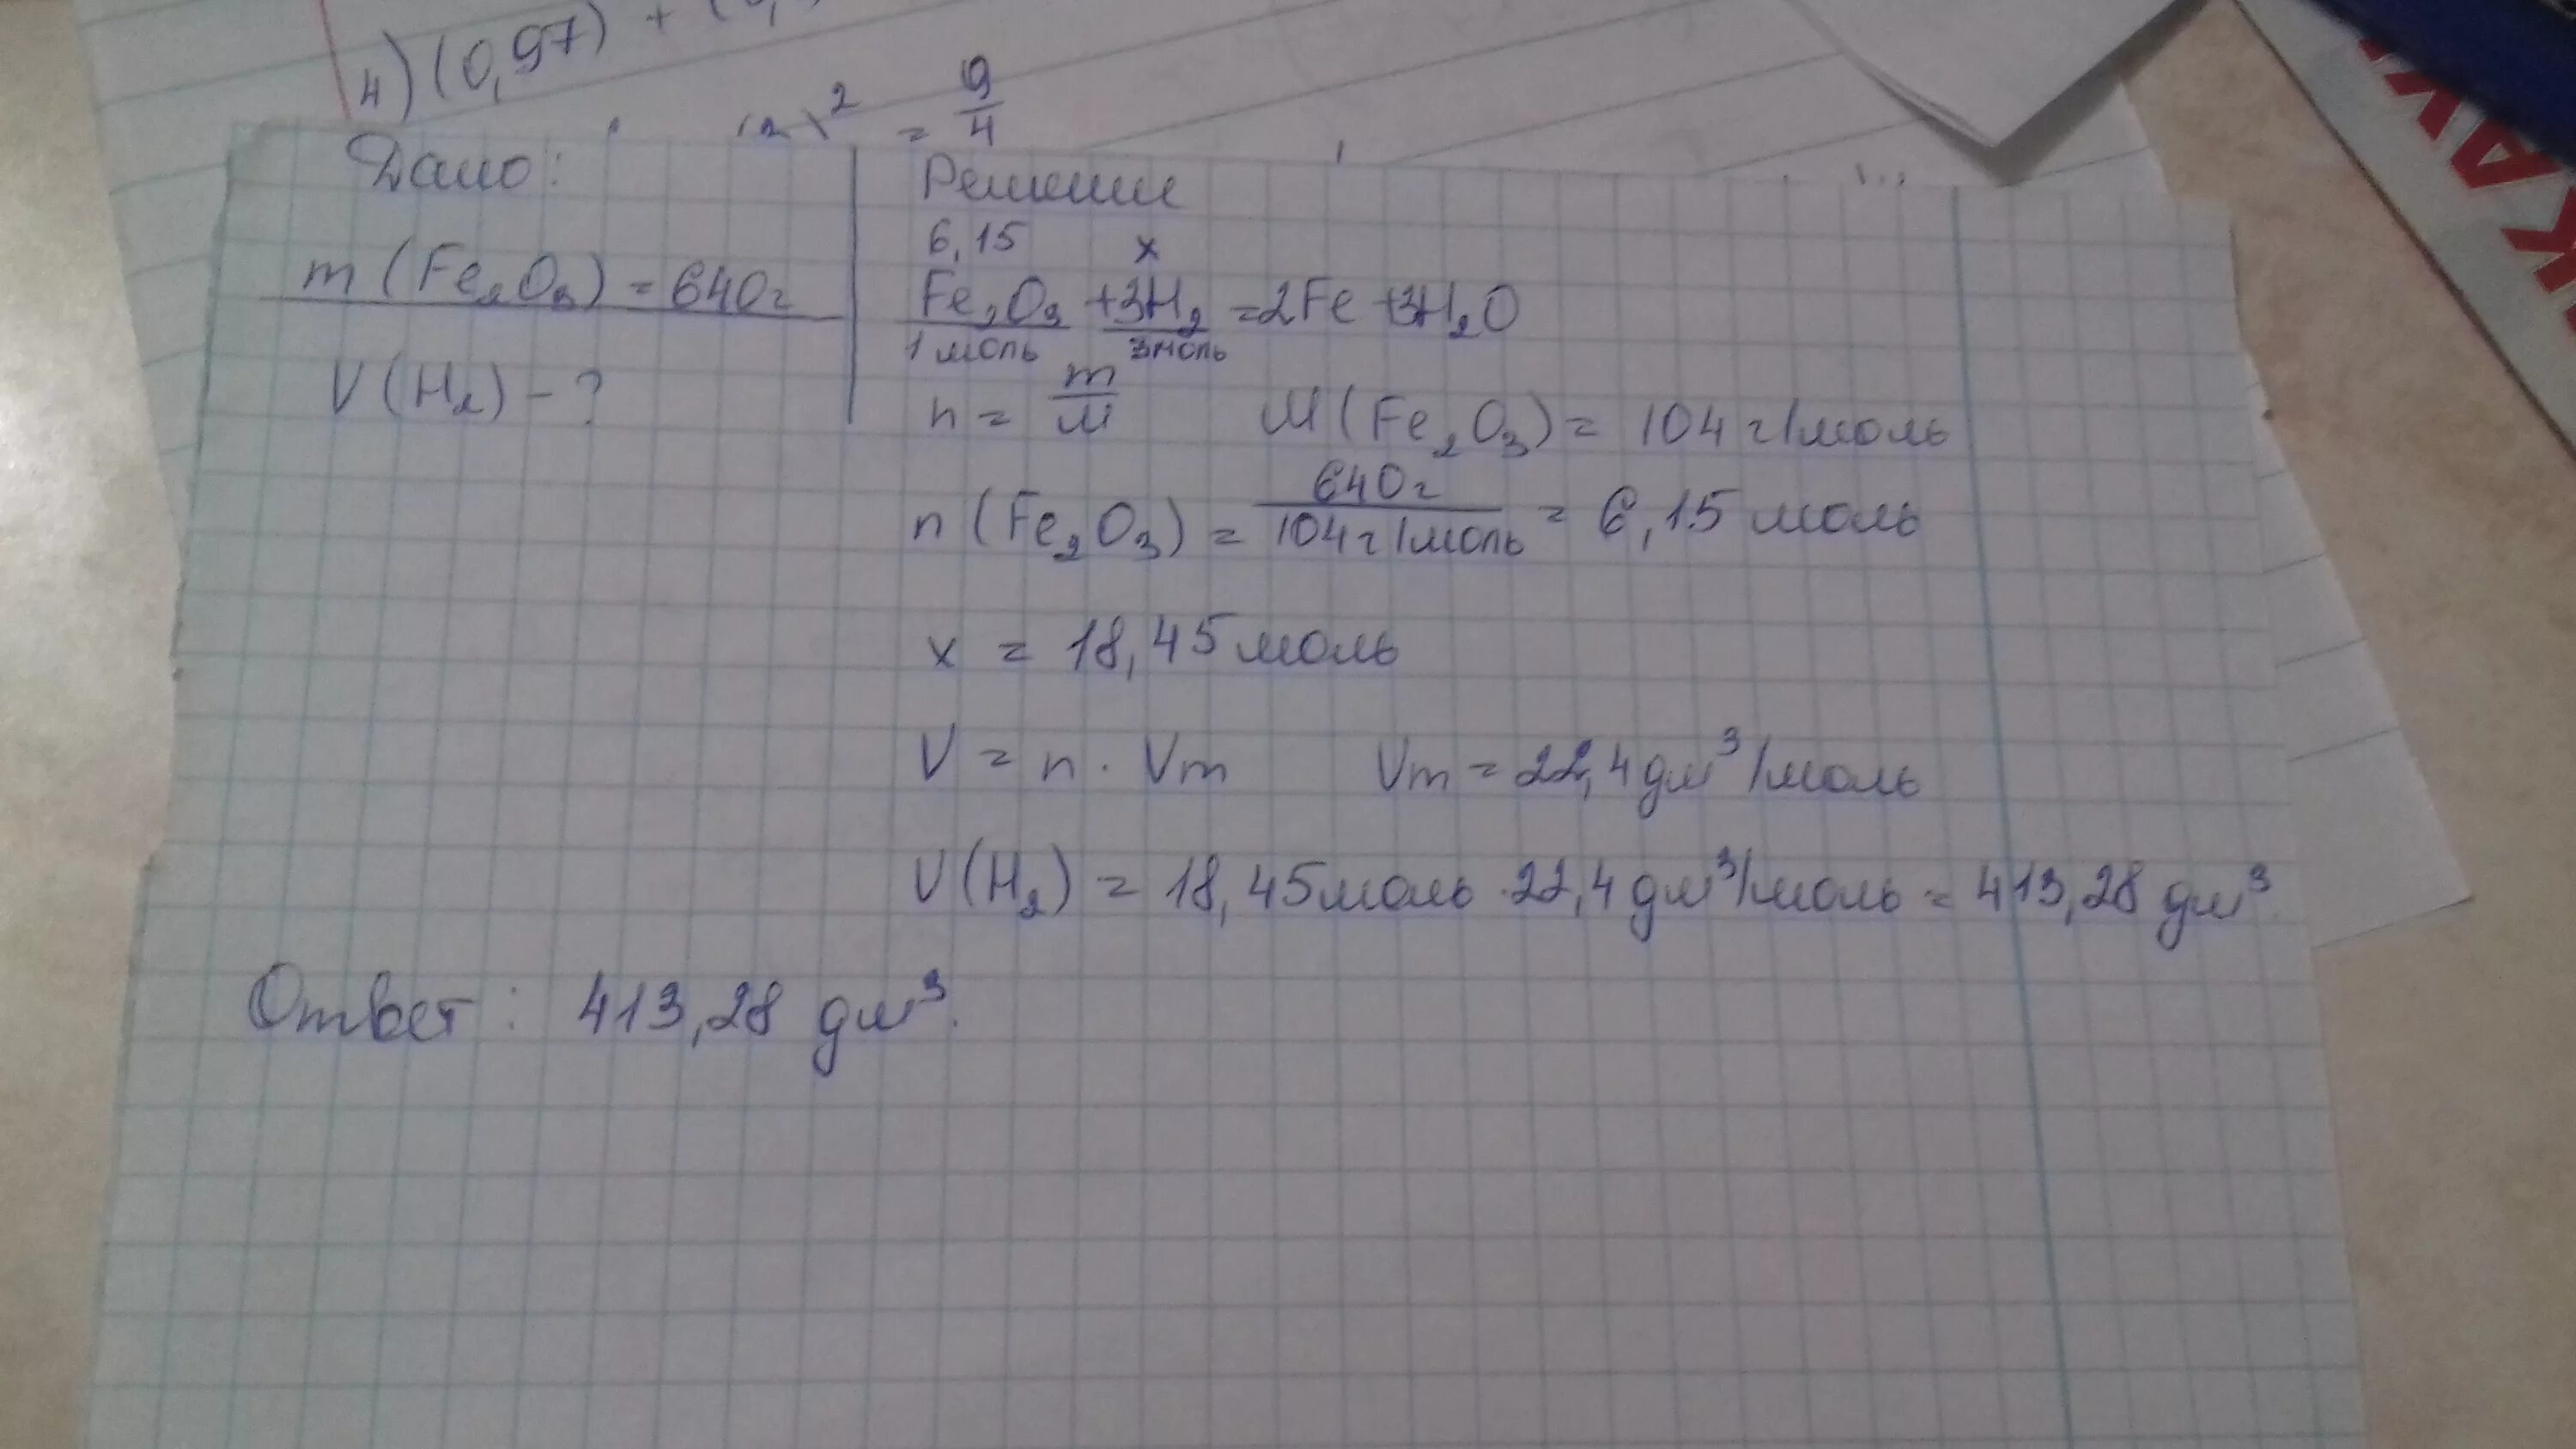 4) (0,97) +
2 = 9/4
Дано:
m (Fe₂O₃) = 640г
V (H₂) - ?
Решение
6,15 x
Fe₂O₃ + 3H₂ = 2Fe + 3H₂O
1 моль 3моль
n = m/M M (Fe₂O₃) = 104 г/моль
n (Fe₂O₃) = 640г/104г/моль = 6,15 моль
x = 18,45 моль
V = n · Vm Vm = 22,4 дм³/моль
V(H₂) = 18,45моль · 22,4 дм³/моль = 413,28 дм³.
Ответ: 413,28 дм³.